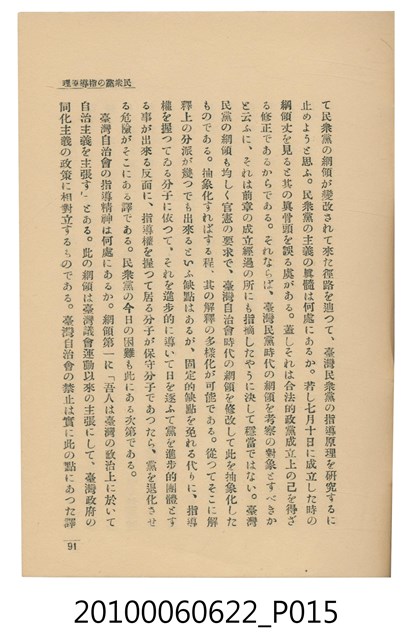 理原導指の黨衆民
て民衆黨の綱領が變改されて來た徑路を辿つて、臺灣民衆黨の指導原理を研究するに
止めようと思ふ。民衆黨の主義の眞髓は何處にあるか。若し七月十日に成立した時の
綱領丈を見ると其の眞骨頭を誤る虞がある。蓋しそれは合法的政黨成立上の已を得ざ
る修正であるからである。それならば、臺灣民黨時代の綱領を考察の對象とすべきか
と云ふに、それは前章の成立經過の所にも指摘したやうに決して穩當ではない。臺灣
民黨の綱領も均しく官憲の要求で、臺灣自治會時代の綱領を修改して此を抽象化した
ものである。抽象化すればする程、其の解釋の多樣化が可能である。從つてそこに解
釋上の分派が幾つでも出來るといふ缺點はあるが、固定的缺點を免れる代りに、指導
權を握つてゐる分子に依つて、それを進步的に導いて日を逐ふて黨を進步的團體とす
る事が出來る反面に、指導權を握つて居る分子が保守分子であつたら、黨を退化させ
る危險がそこにある譯である。民衆黨の今日の困難も此にある次第である。
臺灣自治會の指導精神は何處にあるか。綱領第一に「吾人は臺灣の政治上に於いて
自治主義を主張す」とある。此の綱領は臺灣議會運動以來の主張にして、臺灣政府の
同化主義の政策に相對立するものである。臺灣自治會の禁止は實に此の點にあつた譯
91
20100060622_P015